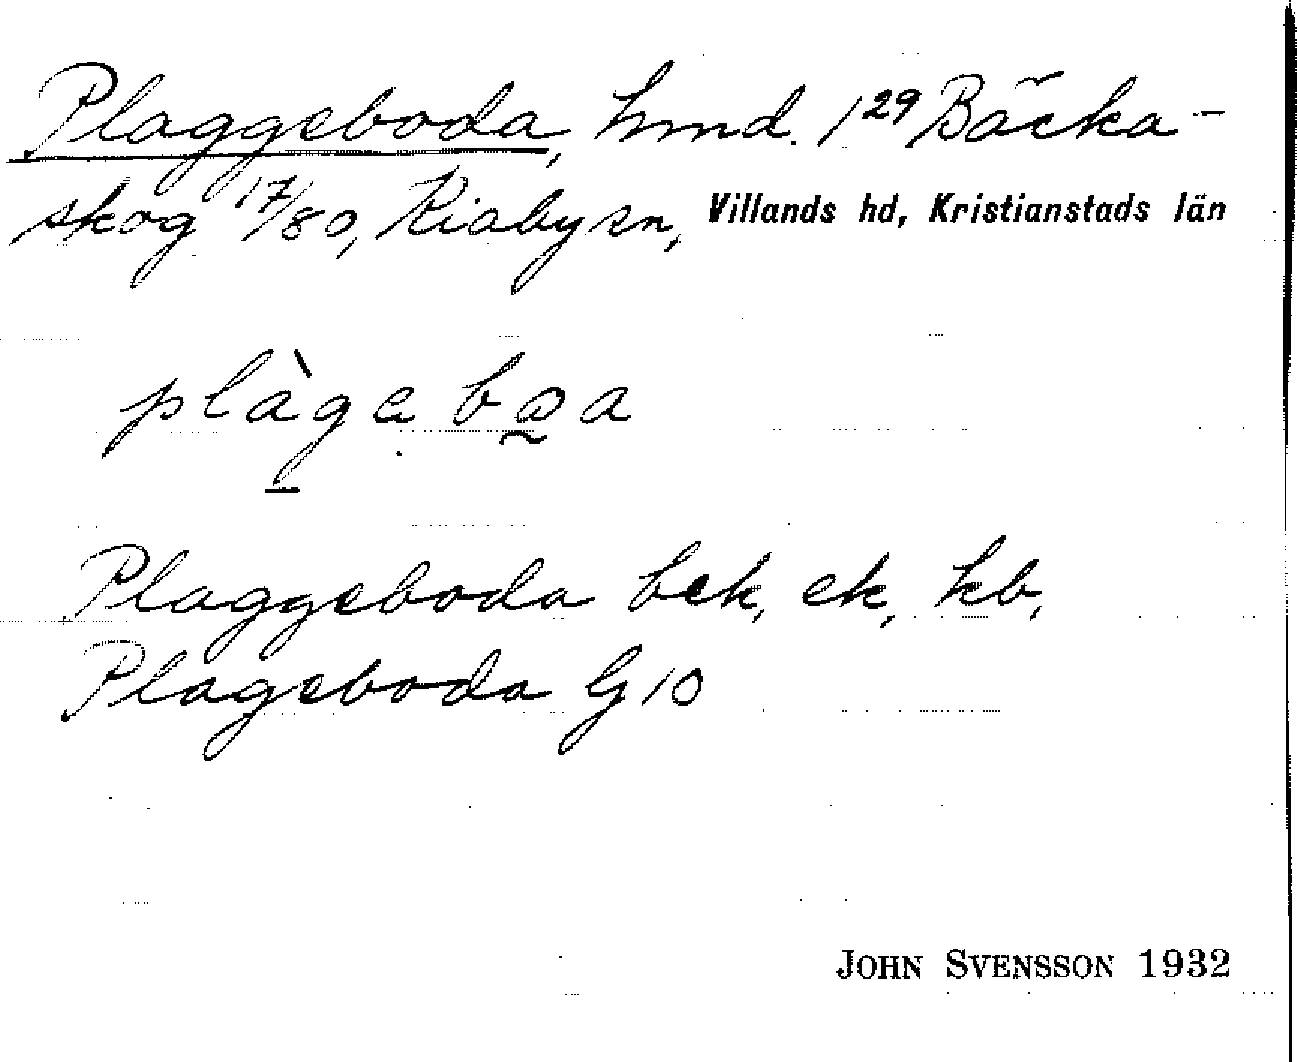 Plaggeboda, hmd. 1²⁹ Bäcka-
skog 17/80, Kiaby sn, Villands hd, Kristianstads län
plàgəbꙍa
Plaggeboda bek, ek, kb,
Plageboda G 10
JOHN SVENSSON 1932